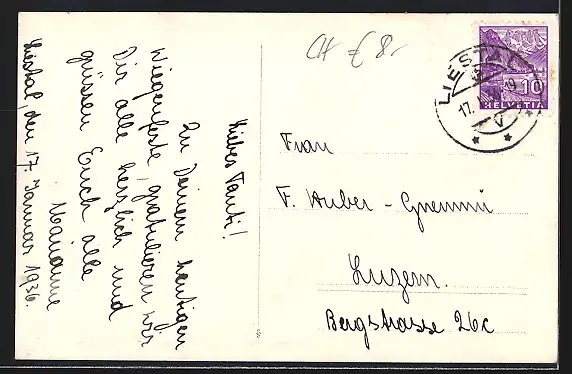 Liebes Tanti!
Zu Deinem heutigen
Wiegenfeste, gratulieren wir
Dir alle herzlich und
grüssen Euch alle
Marianne
Liestal, den 17. Januar 1936.
CH € 8.-
LIESTAL
17.
V
10
HELVETIA
Frau
F. Huber -
Luzern.
Bergstrasse 26c